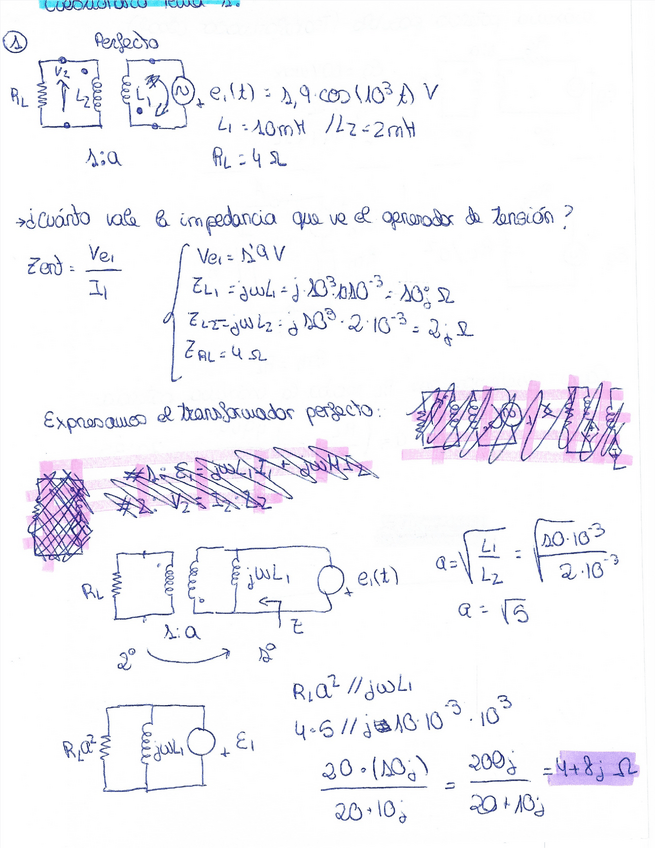 Cuestionario Tema 1:
① Perfecto
RL V2 L2 L1 + e₁(t) = 1,9·cos(10³t) V
L₁ = 10mH / L₂ = 2mH
1:a RL = 4 Ω
→¿Cuánto vale la impedancia que ve el generador de tensión?
Zent = Ve₁ / I₁
Ve₁ = 1'9 V
ZL₁ = jωL₁ = j·10³·10·10⁻³ = 10j Ω
ZL2 = jωL₂ = j 10³·2·10⁻³ = 2j Ω
ZRL = 4 Ω
Expresamos el transformador perfecto:
#1: E₁ = jωL₁I₁ + jωMI₂
#2: V₂ = I₂·Z₂
RL jωL₁ + e₁(t)
a = √(L₁/L₂) = √(10·10⁻³ / 2·10⁻³)
1:a Z
a = √5
2º 1º
RLa² // jωL₁
4·5 // j 10·10⁻³·10³
RLa² jωL₁ + E₁
20·(10j) / 20+10j = 200j / 20+10j = 4+8j Ω